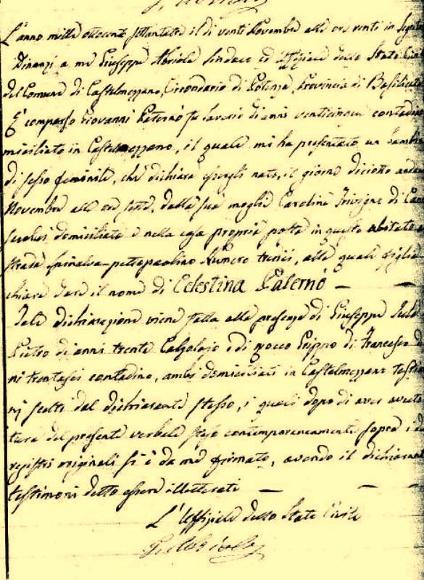 L'anno mille ottocento settantotto il dì venti Novembre alle ore venti in
Dinanzi a me Giuseppe Abriola Sindaco ed Uffiziale dello Stato Civile
del Comune di Castelmezzano, Circondario di Potenza, Provincia di Basilicata
È comparso Giovanni Paternò fu di anni venticinque contadino
domiciliato in Castelmezzano, il quale mi ha presentato un bambino
di sesso femminile, che dichiara essergli nato, il giorno diciotto andante
Novembre alle ore sette, dalla sua moglie Carolina di
domiciliata e nella casa propria posta in questo abitato
strada Numero tredici, alla quale figlia
dare il nome di Celestina Paternò
Tale dichiarazione viene fatta alla presenza di Giuseppe
Pietro di anni trenta Calzolajo e di Rocco di Francesco di
ni trentasei contadino, ambi domiciliati in Castelmezzano testi
nj scelti dal dichiarante stesso, i quali dopo di aver avuto
tura del presente verbale steso contemporaneamente sopra i due
registri originali si è da me firmato, avendo il dichiarante
testimoni detto essere illetterati
L'Uffiziale dello Stato Civile